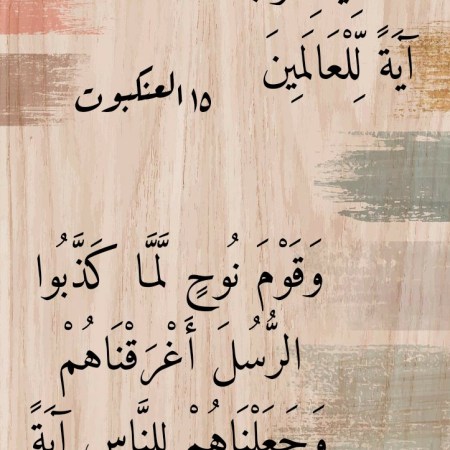 آيَةً لِّلْعَالَمِينَ
١٥ العنكبوت
وَقَوْمَ نُوحٍ لَّمَّا كَذَّبُوا
الرُّسُلَ أَغْرَقْنَاهُمْ
وَجَعَلْنَاهُمْ لِلنَّاسِ آيَةً